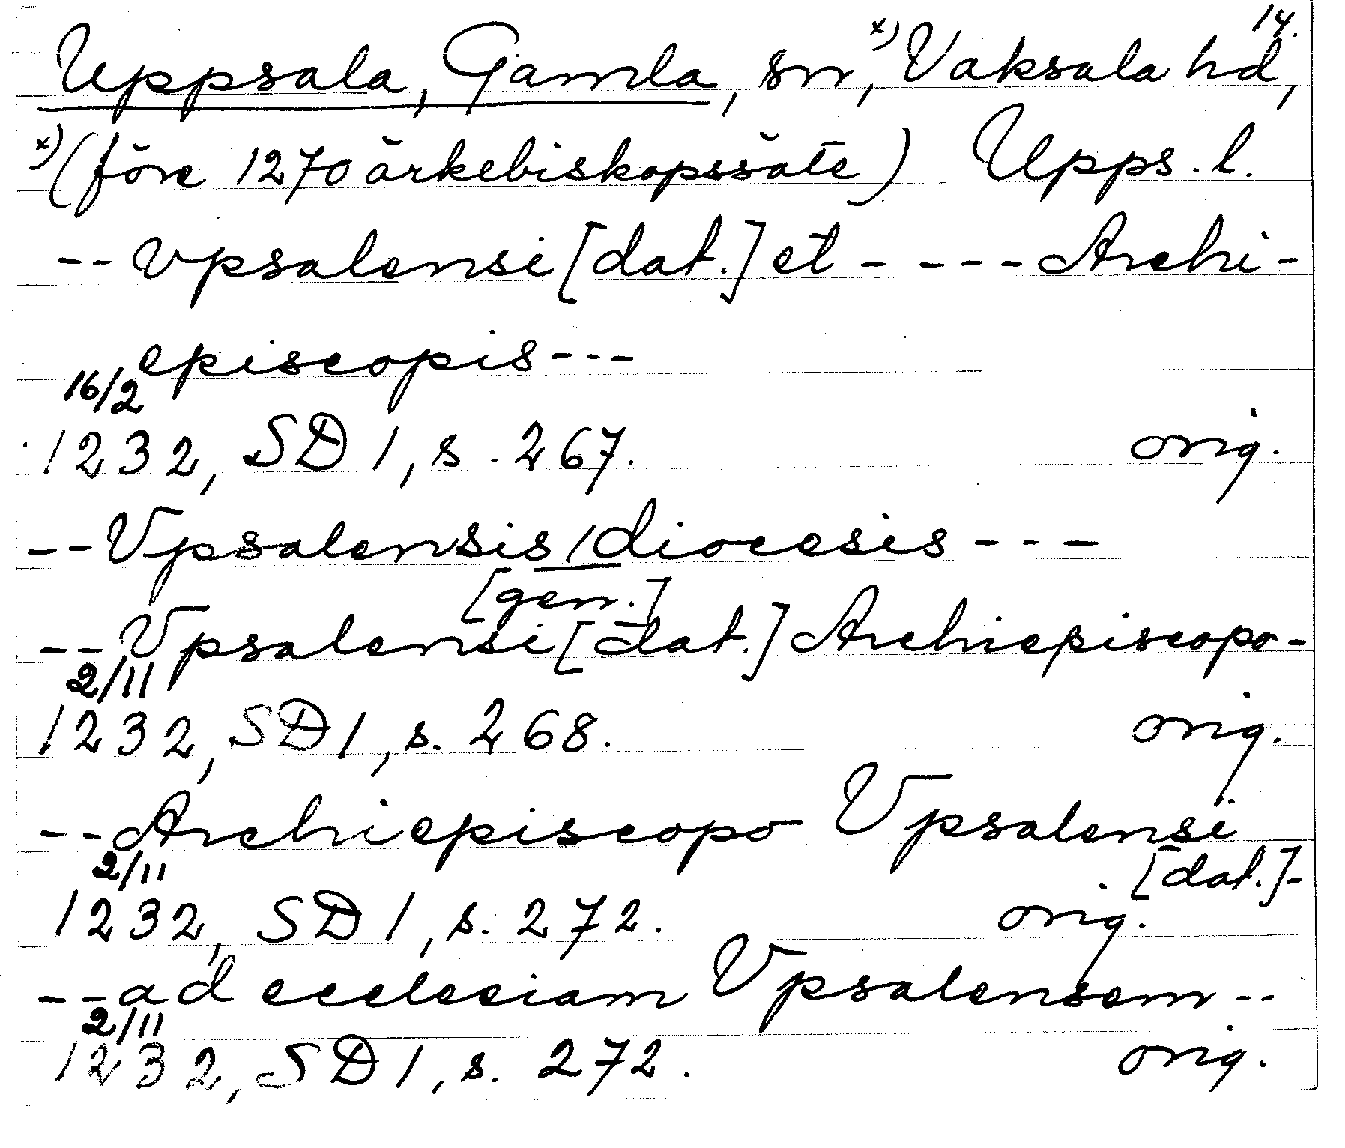 14.
Uppsala, Gamla, sn, x) Vaksala hd,
x) (före 1270 ärkebiskopssäte) Upps. l.
-- vpsalensi [dat.] et - --- Archi-
episcopis ---
16/2
1232, SD 1, s. 267. orig.
-- Vpsalensis / diocesis ---
[gen.]
-- Vpsalensi [dat.] Archiepiscopo -
2/11
1232, SD 1, s. 268. orig.
-- Archiepiscopo Vpsalensi
[dat.] -
2/11
1232, SD 1, s. 272. orig.
-- ad eccleciam Vpsalensem --
2/11
1232, SD 1, s. 272. orig.